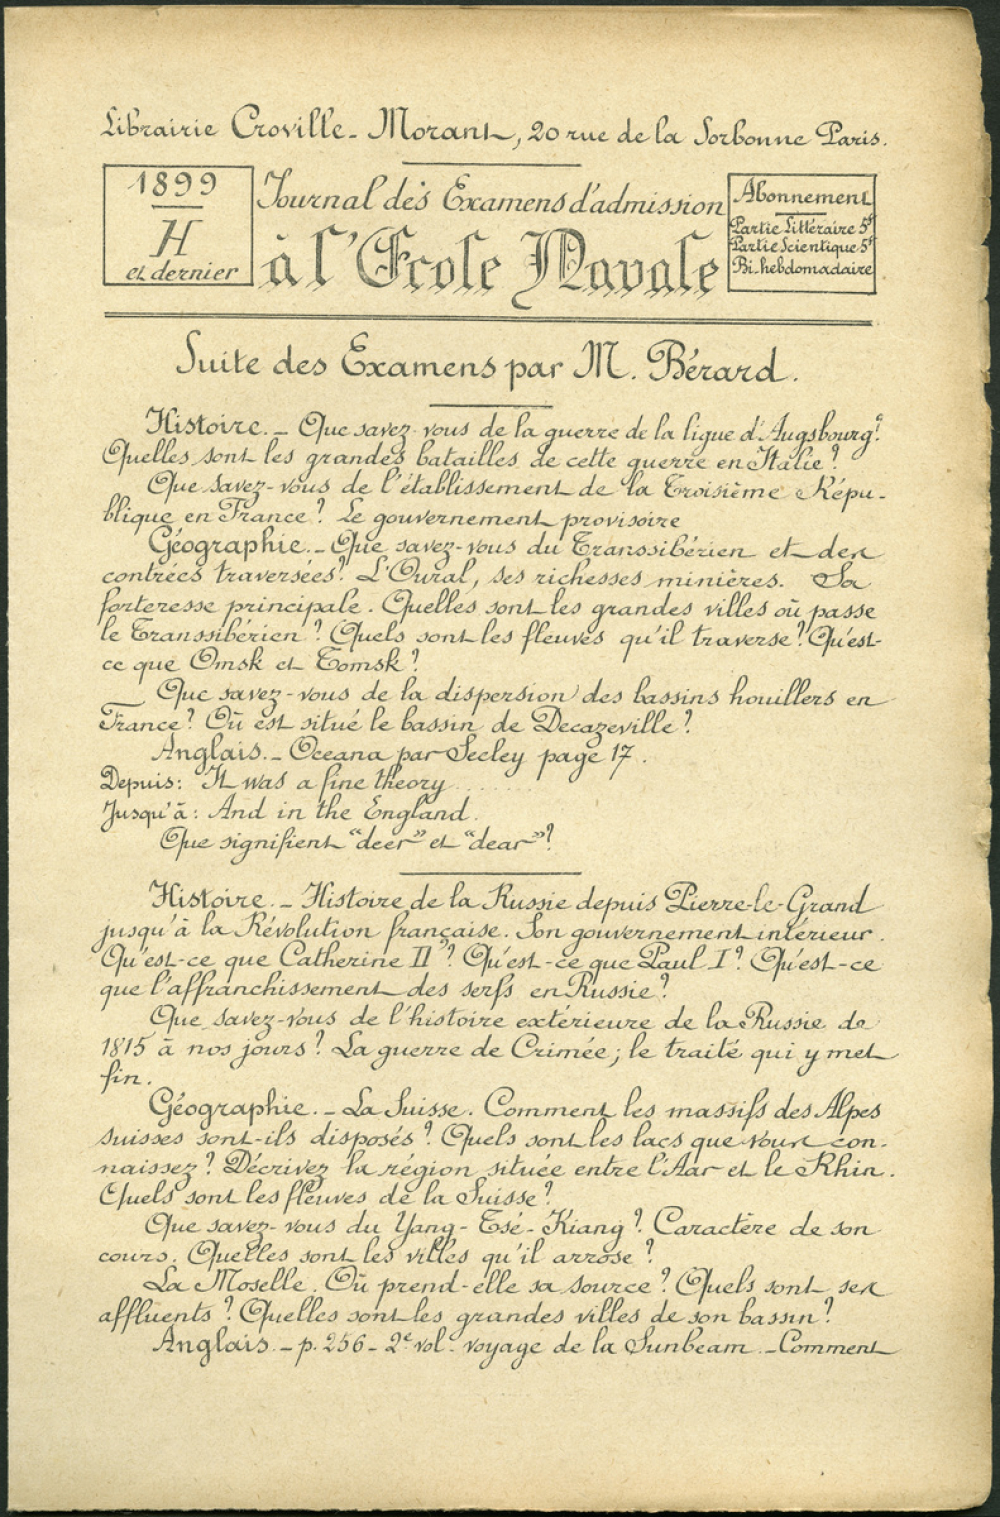 Librairie Croville-Morant, 20 rue de la Sorbonne Paris.
1899
H
et dernier
Journal des Examens d'admission
à l'École Navale
Abonnement
Partie Littéraire 5f
Partie Scientique 5f
Bi-hebdomadaire
Suite des Examens par M. Bérard.
Histoire. - Que savez-vous de la guerre de la ligue d'Augsbourg?
Quelles sont les grandes batailles de cette guerre en Italie?
Que savez-vous de l'établissement de la Troisième Répu-
blique en France? Le gouvernement provisoire
Géographie. - Que savez-vous du Transsibérien et des
contrées traversées? L'Oural, ses richesses minières. Sa
forteresse principale. Quelles sont les grandes villes où passe
le Transsibérien? Quels sont les fleuves qu'il traverse? Qu'est-
ce que Omsk et Tomsk?
Que savez-vous de la dispersion des bassins houillers en
France? Où est situé le bassin de Decazeville?
Anglais. - Oceana par Seeley page 17.
Depuis: It was a fine theory ........
Jusqu'à: And in the England.
Que signifient "deer" et "dear"?
Histoire. - Histoire de la Russie depuis Pierre-le-Grand
jusqu'à la Révolution française. Son gouvernement intérieur.
Qu'est-ce que Catherine II? Qu'est-ce que Paul I? Qu'est-ce
que l'affranchissement des serfs en Russie?
Que savez-vous de l'histoire extérieure de la Russie de
1815 à nos jours? La guerre de Crimée; le traité qui y met
fin.
Géographie. - La Suisse. Comment les massifs des Alpes
suisses sont-ils disposés? Quels sont les lacs que vous con-
naissez? Décrivez la région située entre l'Aar et le Rhin.
Quels sont les fleuves de la Suisse?
Que savez-vous du Yang-Tsé-Kiang? Caractère de son
cours. Quelles sont les villes qu'il arrose?
La Moselle. Où prend-elle sa source? Quels sont ses
affluents? Quelles sont les grandes villes de son bassin?
Anglais. - p. 256 - 2e vol. voyage de la Sunbeam. - Comment